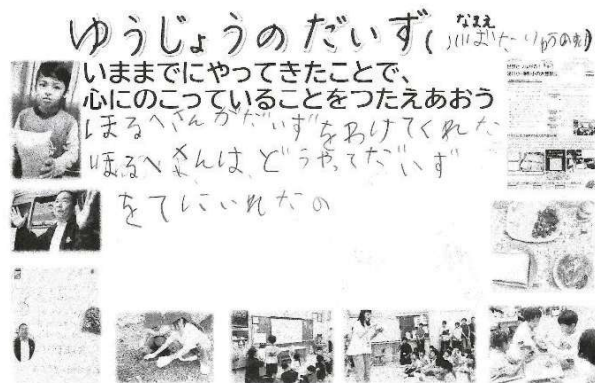 ゆうじょうのだいず(
なまえ
いままでにやってきたことで、
心にのこっていることをつたえあおう
ほるへさんがだいずをわけてくれた
ほるへさんは、どうやってだいず
をてにいれたの